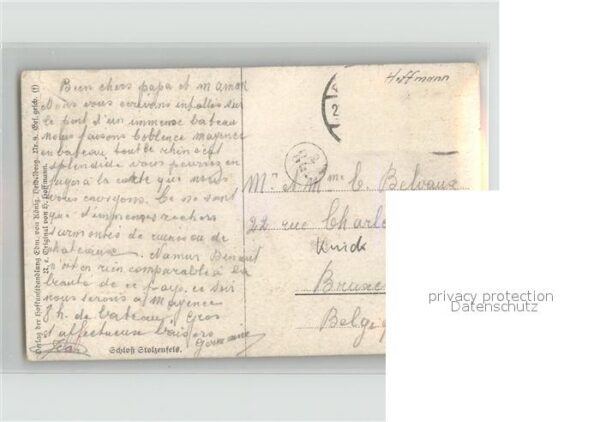 Bien chers papa et maman
Nous vous écrivons installés sur
le pont d'un immense bateau
nous faisons Coblence Mayence
en bateau tout ce Rhin c'est
splendide vous pourrez en
juger à la carte que nous
vous envoyons. Ce ne sont
que d'immenses rochers
surmontés de ruines ou de
châteaux. Namur Dinant
n'ont rien comparable à la
beauté de ce pays. ce soir
nous serons à Mayence
8 h. de bateau. Gros
et affectueux baisers
Germaine
Schloß Stolzenfels.
Verlag der Hofkunsthandlung Edm. von König, Heidelberg. Nr. 9. Ges. gesch. (f)
N. e. Original von H. Hoffmann.
Hoffmann
2
Mr et Mme C. Belvaux
22 rue Charle
Bruxe
Belgiq
privacy protection
Datenschutz